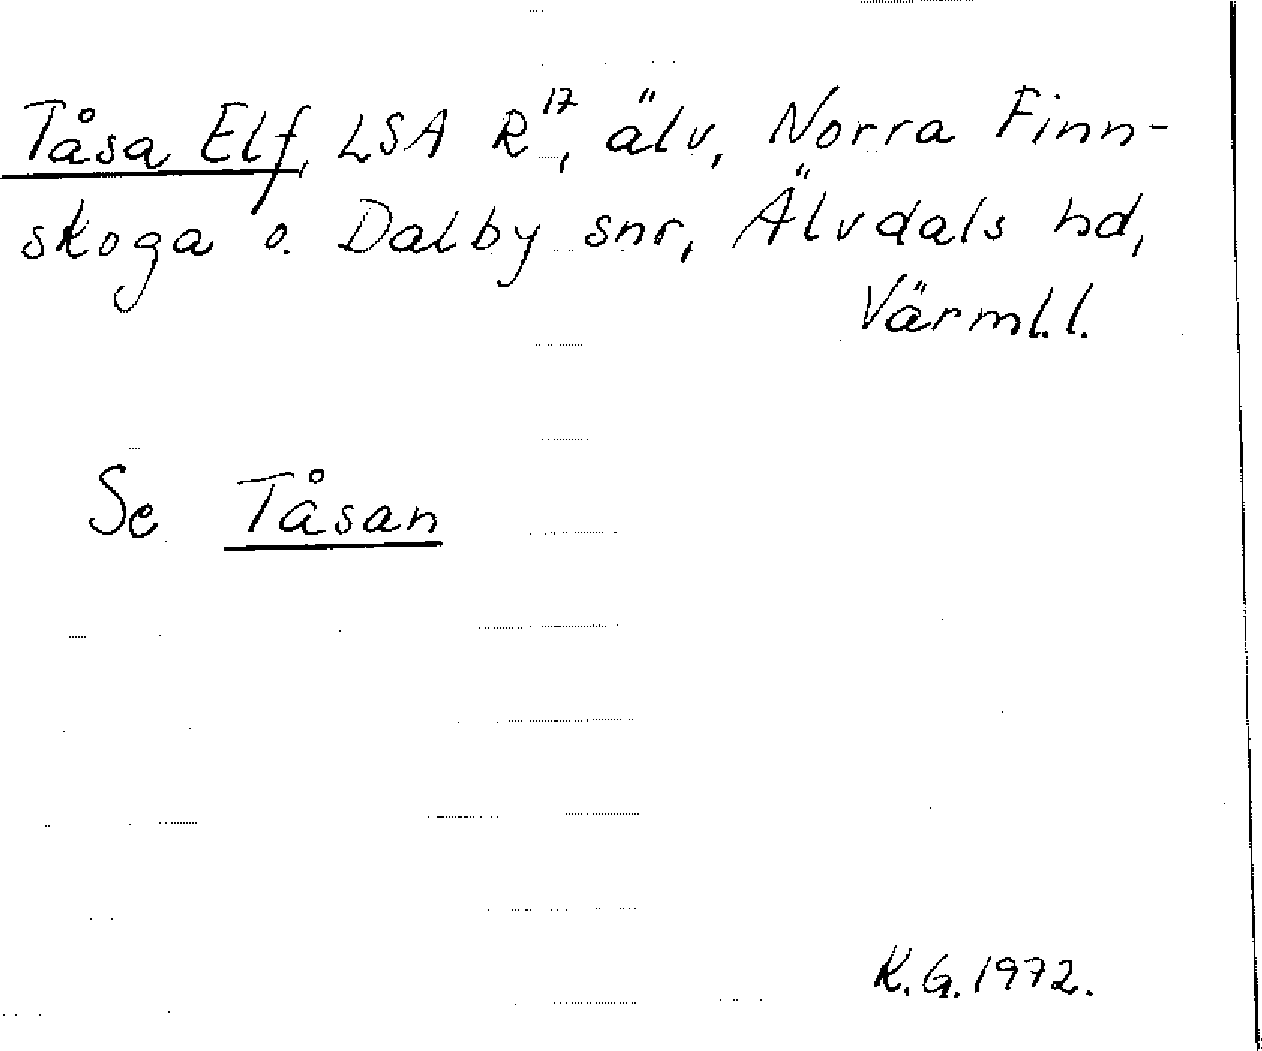 Tåsa Elf, LSA R17, älv, Norra Finn-
skoga o. Dalby snr, Älvdals hd,
Värml.l.
Se Tåsan
K.G.1972.